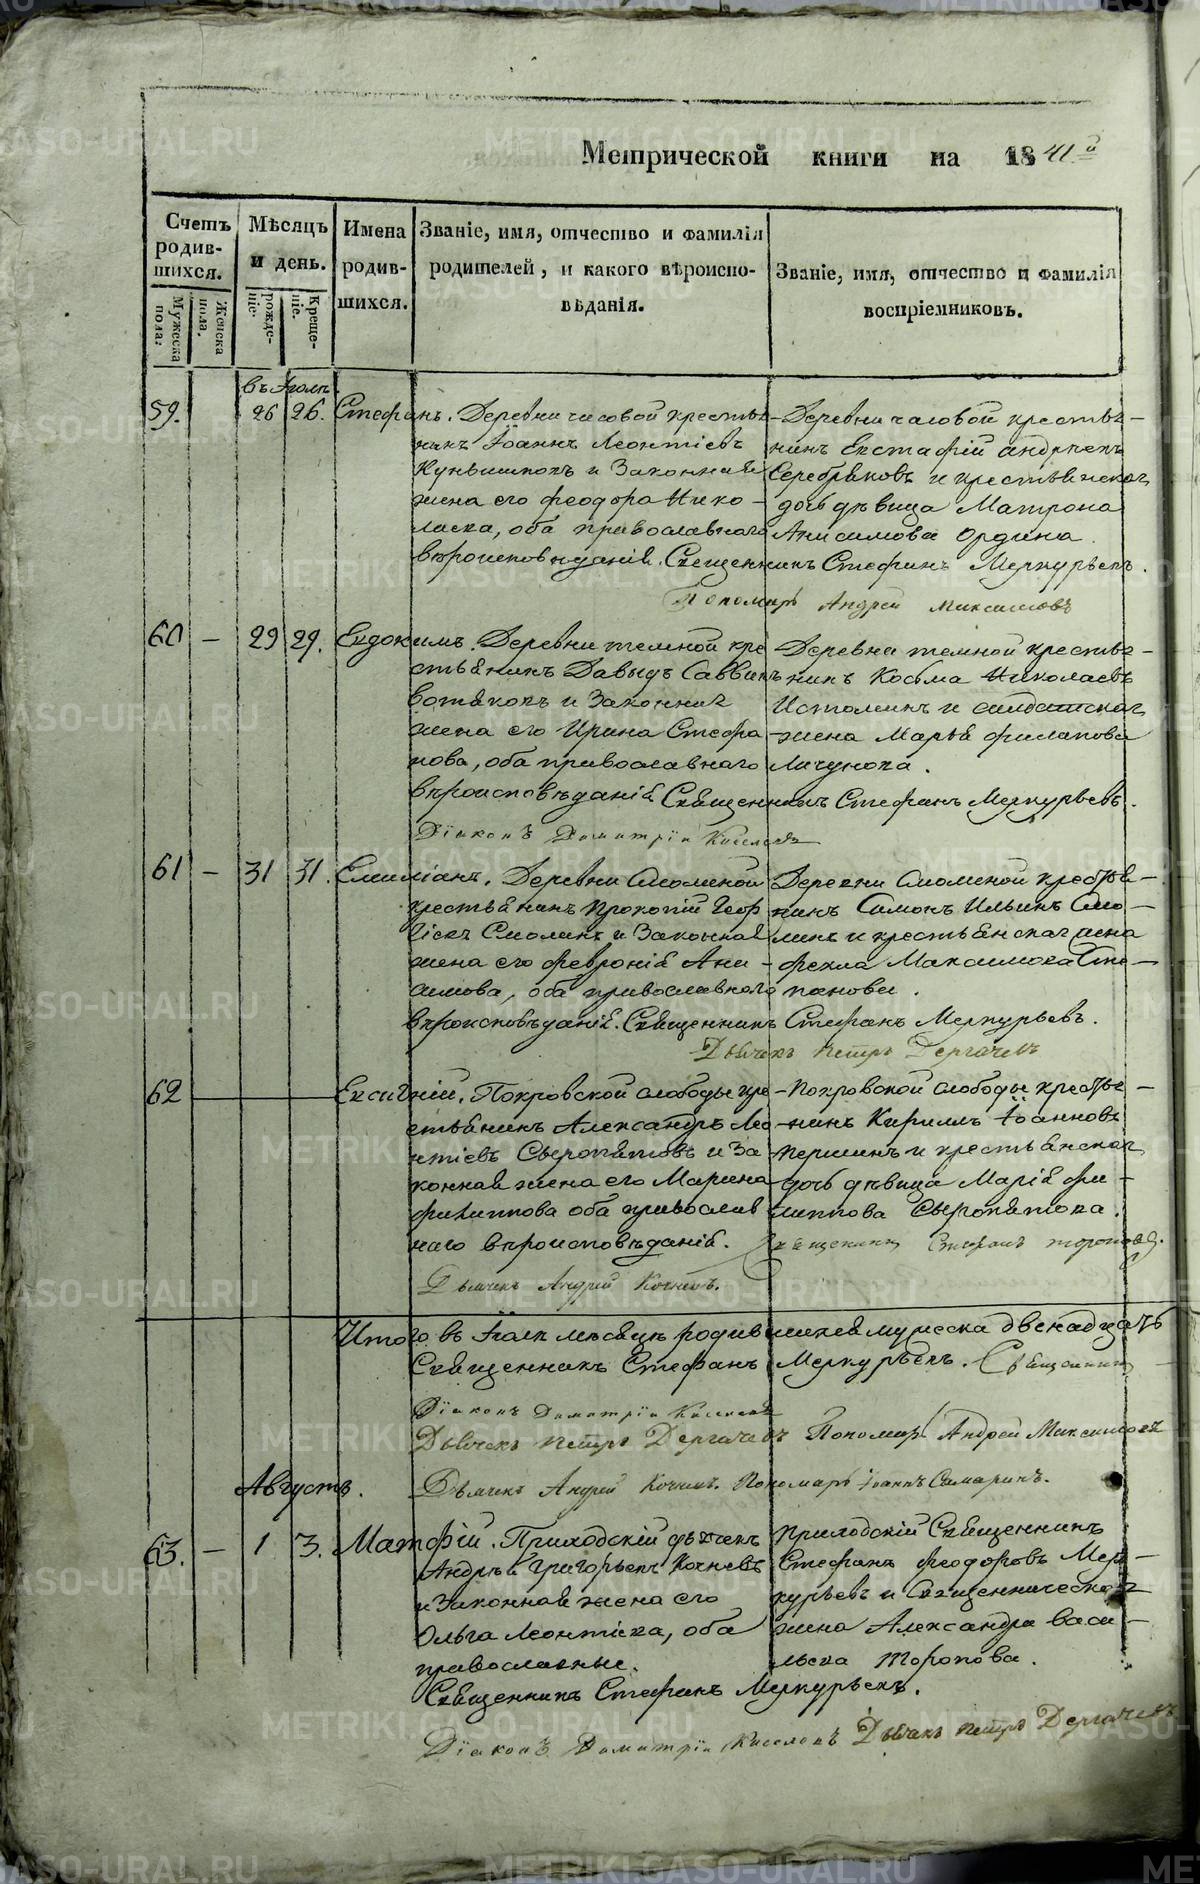 Метрической книги на 1841й
Счетъ родившихся.
Мужеска пола.
Женска пола.
Мѣсяцъ и день.
рожденіе.
Крещеніе.
Имена родившихся.
Званіе, имя, отчество и фамилія
родителей, и какого вѣроиспо-
вѣданія.
Званіе, имя, отчество и фамилія
воспріемниковъ.
въ Іюлѣ
59. 26 26. Стефанъ. Деревни часовой крестья-
нинъ Іоаннъ Леонтіевъ
и Законная
жена его Феодора Нико-
лаева, оба православнаго
вѣроисповѣданія. Священникъ Стефанъ Меркурьевъ.
Деревни часовой крестья-
нинъ Евстафій Андреевъ
Серебряковъ и крестьянская
дочь дѣвица Матрона
Анисимова Ордина.
Пономарь Андрей Максимовъ
60 — 29 29. Евдокимъ. Деревни темной кре
стьянинъ Давыдъ Саввинъ
Вотяковъ и Законная
жена его Ирина Стефа
нова, оба православнаго
вѣроисповѣданія Священникъ Стефанъ Меркурьевъ.
Деревни темной крестья-
нинъ Косьма Николаевъ
Истоминъ и солдатская
жена Марья Филатова
Личунова.
Діаконъ Димитрій Киселевъ
61 — 31 31. Емиліанъ. Деревни Смолиной
крестьянинъ Прокопій Геор
гіевъ Смолинъ и Законная
жена его Февронія Ани-
симова, оба православнаго
вѣроисповѣданія. Священникъ Стефанъ Меркурьевъ.
Деревни Смолиной крестья-
нинъ Симонъ Ильинъ Смо-
линъ и крестьянская жена
Фекла Максимова Сте-
панова.
Дьячекъ Петръ Дергачевъ
62 Евсигній. Покровской слободы кре
стьянинъ Александръ Лео
нтіевъ Сыропятовъ и За
конная жена его Марина
Филиппова оба православ
наго вѣроисповѣданія. Священникъ Стефанъ Тороповъ.
Покровской слободы крестья-
нинъ Кирилъ Іоанновъ
Першинъ и крестьянская
дочь дѣвица Марія Фи-
липпова Сыропятова.
Дьячекъ Андрей Кочневъ.
Итого въ Іюлѣ мѣсяцѣ родившихся мужеска двенадцать
Священникъ Стефанъ Меркурьевъ. Священникъ
Діаконъ Димитрій Киселевъ
Дьячекъ Петръ Дергачевъ Пономарь Андрей Максимовъ
Дьячекъ Андрей Кочневъ. Пономарь Іоаннъ Самаринъ.
Августъ.
63. — 1 3. Матфій. Приходскій дьячекъ
Андрей Григорьевъ Кочневъ
и Законная жена его
Ольга Леонтіева, оба
православные.
Приходскій Священникъ
Стефанъ Феодоровъ Мер-
курьевъ и Священническая
жена Александра Васи-
льева Торопова.
Священникъ Стефанъ Меркурьевъ.
Діаконъ Димитрій Киселевъ Дьячекъ Петръ Дергачевъ
METRIKI.GASO-URAL.RU